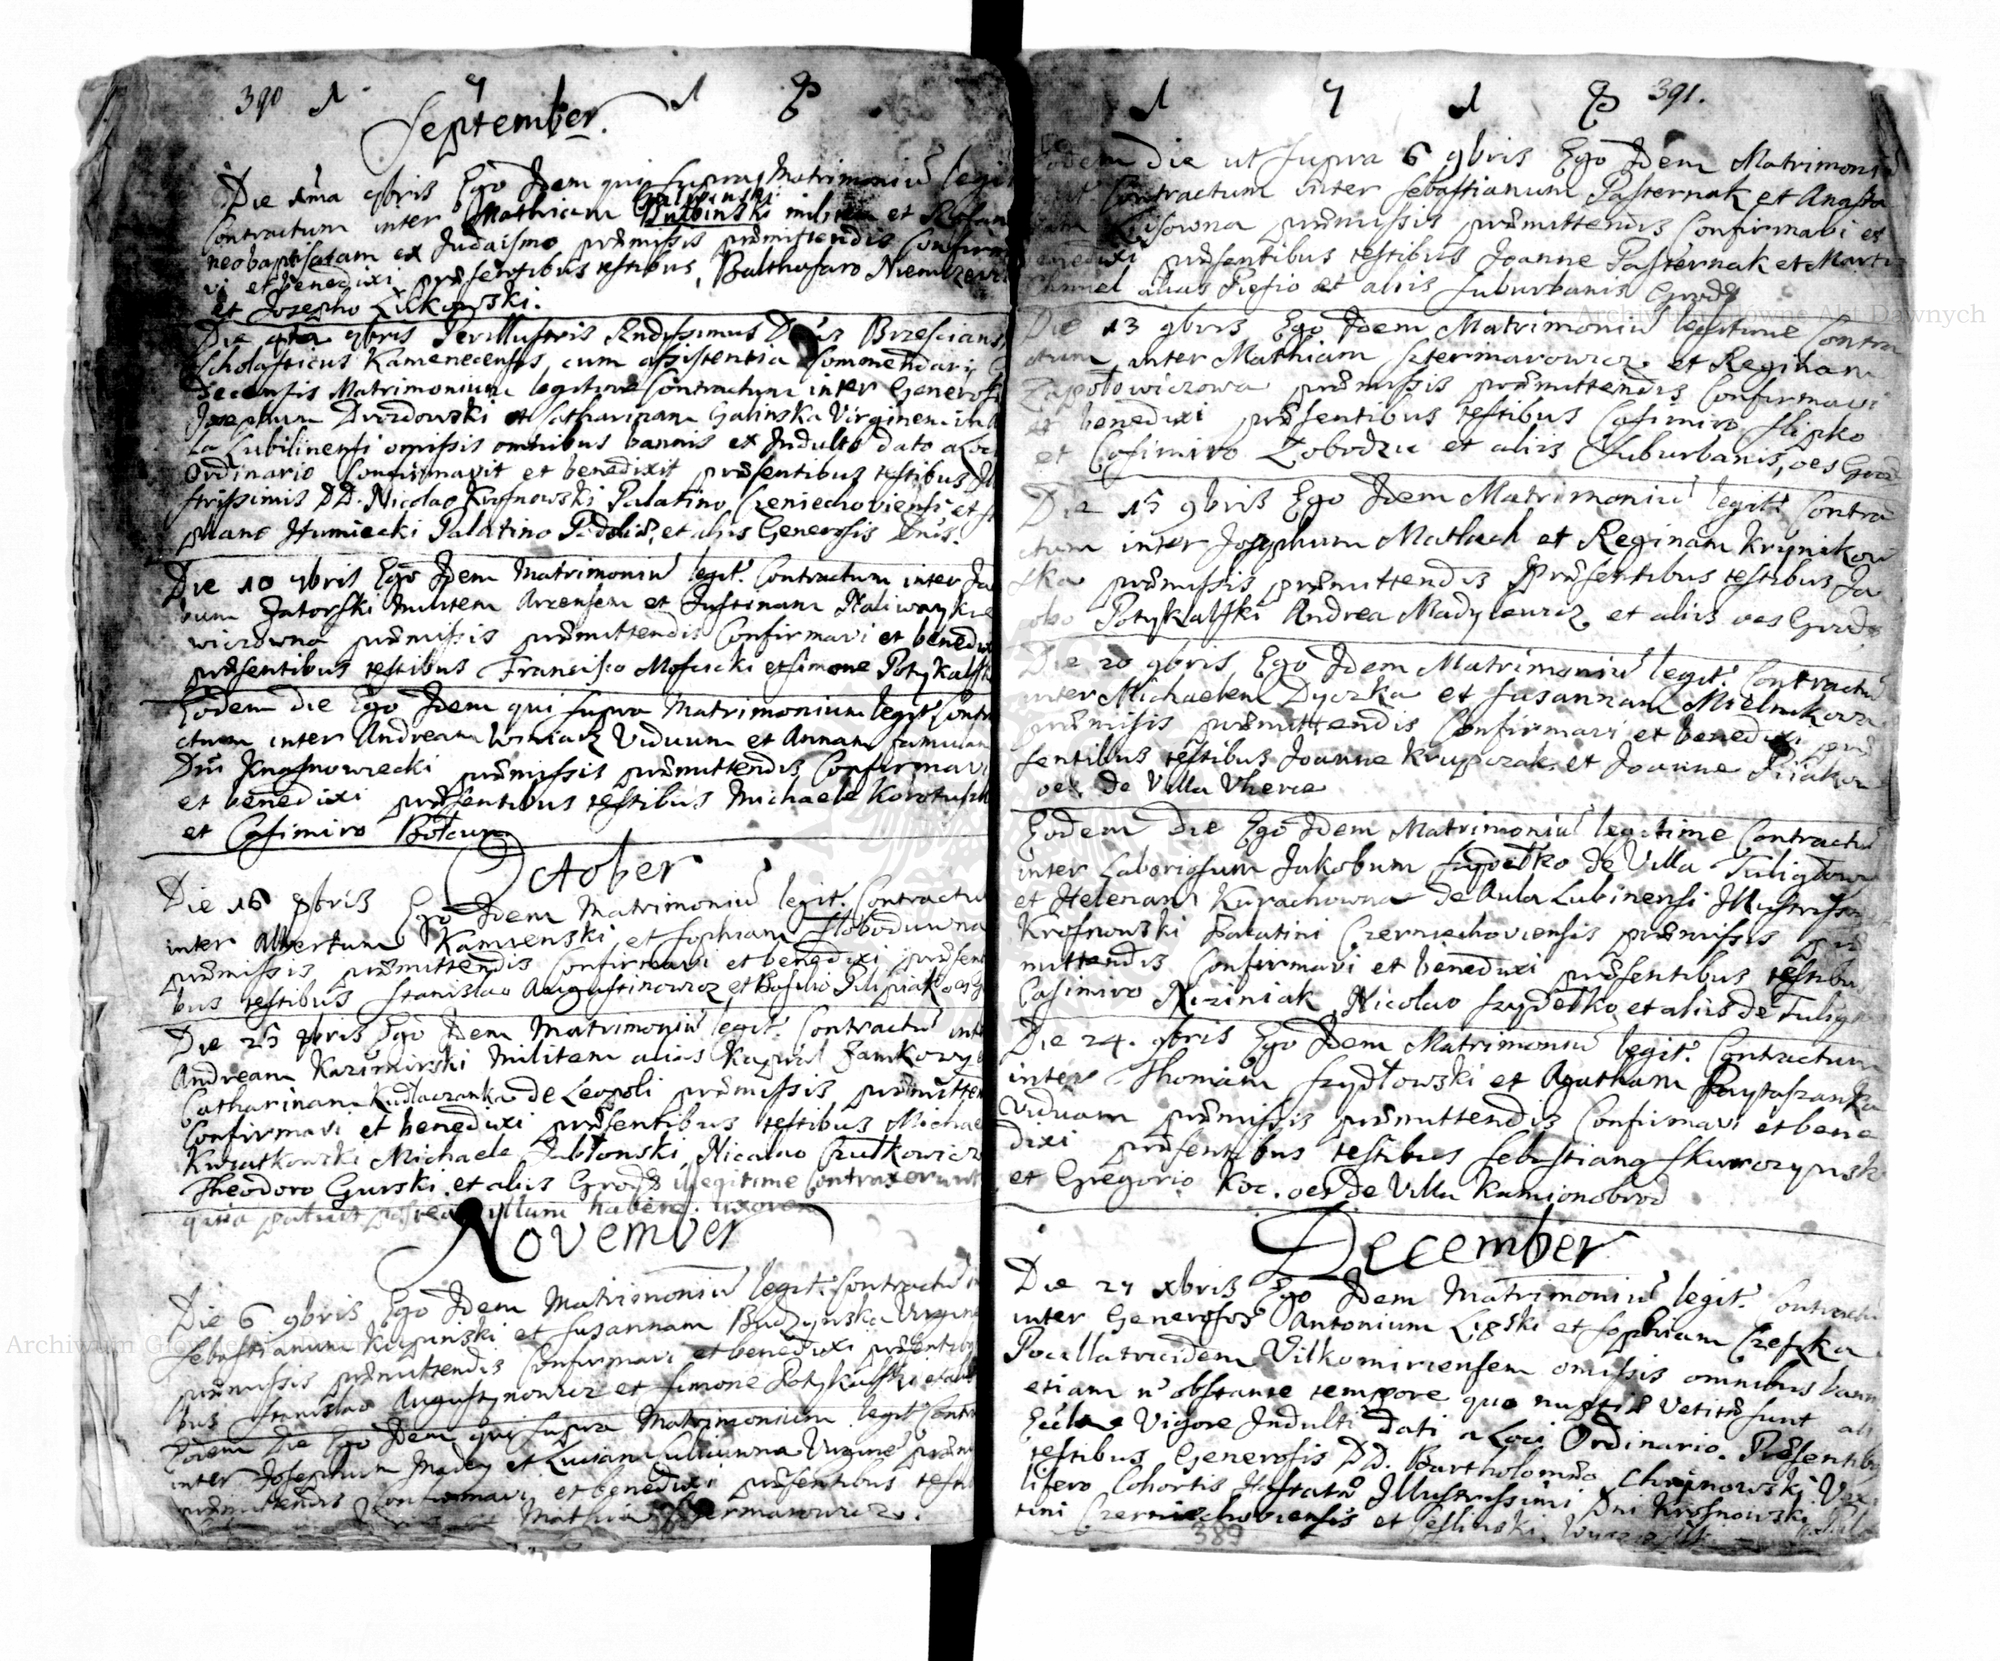 390 1 7 1 8
September.
Die 1ma 9bris Ego Idem qui supra Matrimoniū legit
Contractum inter Mathiam Galpinski Bulbinski militem et Rosan
neobaptisatam ex Judaismo præmissis præmittendis Confirma
vi et benedixi præsentibus testibus, Balthasaro Niemizewi
et Josepho Lickowski.
Die 9bris Perillustris Rndissimus Dnus Brzescians
Scholasticus Kamenecensis, cum assistentia Comendarij
decensis Matrimonium legitime Contractum inter Generosū
Josephum Drozdowski et Catharinam Galinska Virginem in
la Lubilinensi omissis omnibus bannis ex Indulto dato a Loci
Ordinario Confirmavit et benedixit præsentibus testibus Ill
strissimis DD. Nicolao Krosnowski Palatino Czeniechoviensi et S
phano Humiecki Palatino Podoliæ, et alijs Generosis Dnis.
Die 10 9bris Ego Idem Matrimoniū legit. Contractum inter Ja
bum Jatorski Militem Arcensem et Justinam Naliwayk
wiczowna præmissis præmittendis Confirmavi et benedixi
præsentibus testibus Francisco Mosucki et Simone Potykalsk
Eodem die Ego Idem qui supra Matrimonium legit Contra
ctum inter Andream Winiarz Viduum et Annam famulam
Dni Knasnowiecki præmissis præmittendis Confirmavi
et benedixi præsentibus testibus Michaele Korotus
et Casimiro Bołcun
October
Die 16 8bris Ego Idem Matrimoniū legit. Contractū
inter Albertum Kamienski et Sophiam Slobodowna
præmissis præmittendis Confirmavi et benedixi præsenti
bus testibus Stanislao Augustinowicz et Basilio Pilipiak oes G
Die 25 8bris Ego Idem Matrimoniū legit. Contractū inte
Andream Kazimirski Militem alias Kapral Zamkowy
Catharinam Kudlaczanka de Leopoli præmissis præmitten
Confirmavi et benedixi præsentibus testibus Michae
Kwiatkowski Michaele Jabłonski, Nicolao Czulkowicz
Theodoro Gurski et alijs Grodæ illegitime Contraxerunt
quia patuit postea illum habere uxorem
November
Die 6 9bris Ego Idem Matrimoniū legit. Contractū in
Sebastianum Kupinski et Susannam Budzynska Virgine
præmissis præmittendis Confirmavi et benedixi præsenti
bus Stanislao Augustynowicz et Simone Potykalski et alijs
Eodem Die Ego Idem qui supra Matrimonium legit Contra
inter Josephum Madey et Lucianam Virgine præm
præmittendis Confirmavi et benedixi præsentibus testi
et Mathia Szermanowicz.
1 7 1 8 391.
Eodem die ut supra 6 9bris Ego Idem Matrimoniū
Contractum inter Sebastianum Pasternak et Anasta
Lisowna præmissis præmittendis Confirmavi et
benedixi præsentibus testibus Joanne Pasternak et Marti
Chmel alias Piesio et alijs Suburbanis Grodæ
Die 13 9bris Ego Idem Matrimoniū legitime Contra
ctum inter Mathiam Szterimarowicz et Reginam
Zapołowiczowa præmissis præmittendis Confirmavi
et benedixi præsentibus testibus Casimiro Slipko
et Casimiro Lobodzic et aliis Suburbanis, oes Grod
Die 15 9bris Ego Idem Matrimoniū legit. Contra
ctum inter Josephum Matlach et Reginam Krynikow
ska præmissis præmittendis Præsentibus testibus Ja
cobo Potykalski Andrea Madylewicz et alijs oes Grodæ
Die 20 9bris Ego Idem Matrimoniū legit. Contractū
inter Michaelem Dyczka et Susannam Mielnikowa
præmissis præmittendis Confirmavi et benedixi præ
sentibus testibus Joanne Krupczak et Joanne
oes de Villa Vherce
Eodem Die Ego Idem Matrimoniū legitime Contractū
inter Laboriosum Jakobum Szydełko de Villa Tuligłowy
et Helenam Kurachowna de Aula Lubinensi Illustrissi
Krosnowski Palatini Czerniechoviensis præmissis præ
mittendis Confirmavi et benedixi præsentibus testibus
Casimiro Niziniak, Nicolao Szydełko, et aliis de Tulig
Die 24. 9bris Ego Idem Matrimoniū legit. Contractum
inter Thomam Szydłowski et Agatham Prytaszanka
Viduam præmissis præmittendis Confirmavi et bene
dixi præsentibus testibus Sebastiano Skwrozynski
et Gregorio Koc. oes de Villa Kamionobrod
December
Die 27 xbris Ego Idem Matrimoniū legit. Contractū
inter Generosos Antonium Ligski et Sophiam Czeszka
Pocillatricidem Vilkomiriensem omissis omnibus bann
etiam nō obstante tempore quo nuptiæ vetitæ sunt ab
Eccla Vigore Indulti dati a Loci Ordinario. Præsentibus
testibus Generosis DD. Bartholomæo Chojnowski Vexi
lifero Cohortis Hastatæ Illustrissimi Dni Krosnowski Pala
tini Czerniechoviensis et Ceslinski
389
Archiwum Główne Akt Dawnych